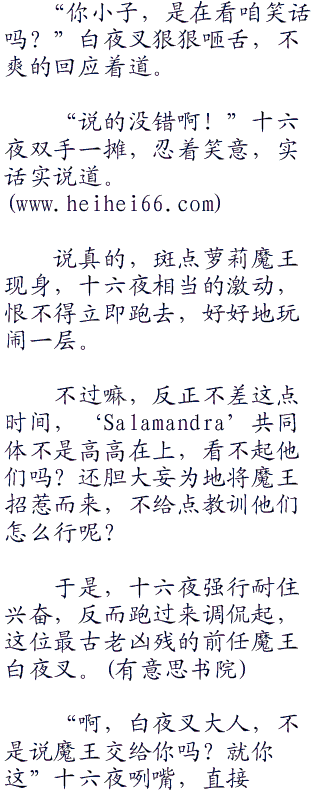 “你小子，是在看咱笑话
吗？”白夜叉狠狠咂舌，不
爽的回应着道。
“说的没错啊！”十六
夜双手一摊，忍着笑意，实
话实说道。
(www.heihei66.com)
说真的，斑点萝莉魔王
现身，十六夜相当的激动，
恨不得立即跑去，好好地玩
闹一层。
不过嘛，反正不差这点
时间，‘Salamandra’共同
体不是高高在上，看不起他
们吗？还胆大妄为地将魔王
招惹而来，不给点教训他们
怎么行呢？
于是，十六夜强行耐住
兴奋，反而跑过来调侃起，
这位最古老凶残的前任魔王
白夜叉。(有意思书院)
“啊，白夜叉大人，不
是说魔王交给你吗？就你
这”十六夜咧嘴，直接